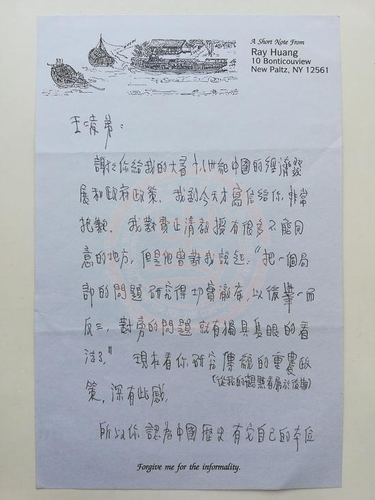 A Short Note From
Ray Huang
10 Bonticouview
New Paltz, NY 12561
王 弟：
謝謝你給我的大著十八世紀中國的經濟發
展和政府政策。我到今天才寫信給你，非常
抱歉。我對費正清教授有很多不能同
意的地方，但是他曾對我說過："把一個局
部的問題研究得切實澈底，以後舉一而
反三，對旁的問題就有獨具隻眼的看
法了。" 現在看你研究傳統的重農政
(從我的觀點看屬於後期)
策，深有此感。
所以你認為中國歷史有它自己的本位
Forgive me for the informality.